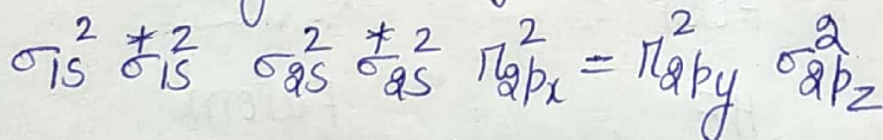 σ1s² σ*1s² σ2s² σ*2s² π2px² = π2py² σ2pz²